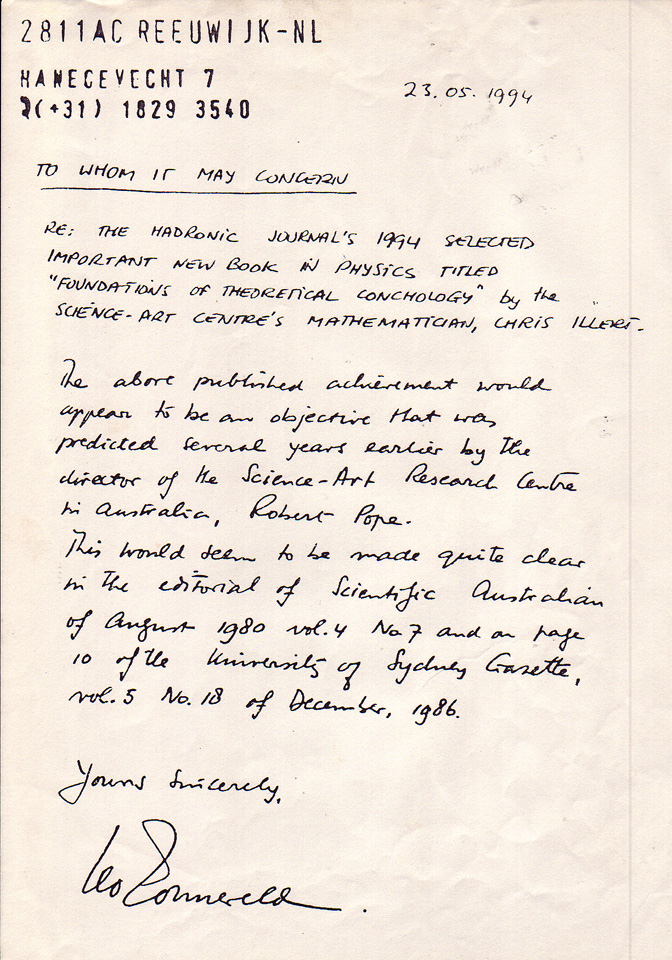 2811AC REEUWIJK-NL
HANEGEVECHT 7
(+31) 1829 3540
23.05.1994
TO WHOM IT MAY CONCERN
RE: THE HADRONIC JOURNAL'S 1994 SELECTED
IMPORTANT NEW BOOK IN PHYSICS TITLED
"FOUNDATIONS OF THEORETICAL CONCHOLOGY" by the
SCIENCE-ART CENTRE'S MATHEMATICIAN, CHRIS ILLERT.
The above published achievement would
appear to be an objective that was
predicted several years earlier by the
director of the Science-Art Research Centre
in Australia, Robert Pope.
This would seem to be made quite clear
in the editorial of Scientific Australian
of August 1980 vol.4 No 7 and on page
10 of the University of Sydney Gazette,
vol.5 No.18 of December, 1986.
Yours Sincerely,
Leo